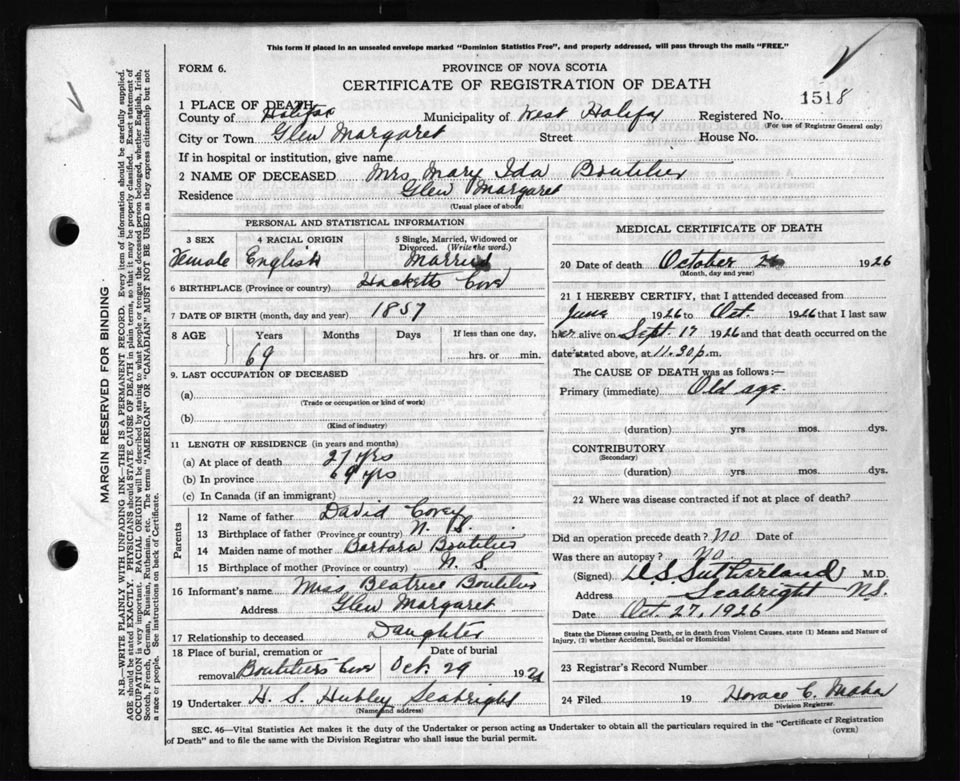 This form if placed in an unsealed envelope marked "Dominion Statistics Free", and properly addressed, will pass through the mails "FREE."
FORM 6.
PROVINCE OF NOVA SCOTIA
CERTIFICATE OF REGISTRATION OF DEATH
1518
1 PLACE OF DEATH—
County of Halifax Municipality of West Halifax Registered No.
(For use of Registrar General only)
City or Town Glen Margaret Street House No.
If in hospital or institution, give name
2 NAME OF DECEASED Mrs Mary Ida Boutilier
Residence Glen Margaret
(Usual place of abode)
PERSONAL AND STATISTICAL INFORMATION
3 SEX 4 RACIAL ORIGIN 5 Single, Married, Widowed or Divorced. (Write the word.)
Female English Married
6 BIRTHPLACE (Province or country) Hacketts Cove
7 DATE OF BIRTH (month, day and year) 1857
8 AGE Years Months Days If less than one day,
69 hrs. or min.
9. LAST OCCUPATION OF DECEASED
(a)
(Trade or occupation or kind of work)
(b)
(Kind of industry)
11 LENGTH OF RESIDENCE (in years and months)
(a) At place of death 27 yrs
(b) In province 69 yrs
(c) In Canada (if an immigrant)
Parents
12 Name of father David Covey
13 Birthplace of father (Province or country) N. S.
14 Maiden name of mother Barbara Boutilier
15 Birthplace of mother (Province or country) N. S.
16 Informant's name Miss Beatrice Boutilier
Address Glen Margaret
17 Relationship to deceased Daughter
18 Place of burial, cremation or removal Date of burial
Boutiliers Cove Oct. 29 192
19 Undertaker H. S. Hubley Seabright
(Name and address)
MEDICAL CERTIFICATE OF DEATH
20 Date of death October 26 1926
(Month, day and year)
21 I HEREBY CERTIFY, that I attended deceased from
June 1926 to Oct. 1926 that I last saw
her alive on Sept. 17 1926 and that death occurred on
date stated above, at 11.30 p.m.
The CAUSE OF DEATH was as follows:—
Primary (immediate) Old age.
(duration) yrs mos. dys.
CONTRIBUTORY
(Secondary)
(duration) yrs. mos. dys.
22 Where was disease contracted if not at place of death?
Did an operation precede death? No Date of
Was there an autopsy? No.
(Signed) D S Sutherland M.D.
Address Seabright N.S.
Date Oct. 27, 1926
State the Disease causing Death, or in death from Violent Causes, state (1) Means and Nature of
Injury, (2) whether Accidental, Suicidal or Homicidal
23 Registrar's Record Number
24 Filed 19 Horace C.
Division Registrar.
SEC. 46—Vital Statistics Act makes it the duty of the Undertaker or person acting as Undertaker to obtain all the particulars required in the "Certificate of Registration
of Death" and to file the same with the Division Registrar who shall issue the burial permit.
(OVER)
MARGIN RESERVED FOR BINDING
N.B.—WRITE PLAINLY WITH UNFADING INK—THIS IS A PERMANENT RECORD. Every item of information should be carefully supplied.
AGE should be stated EXACTLY. PHYSICIANS should STATE CAUSE OF DEATH in plain terms, so that it may be properly classified. Exact statement of
OCCUPATION is very important. RACIAL ORIGIN will be described by stating to what people or tongue the deceased person belonged, whether English, Irish,
Scotch, French, German, Russian, Ruthenian, etc. The terms "AMERICAN" OR "CANADIAN" MUST NOT BE USED as they express citizenship but not
a race or people. See instructions on back of Certificate.